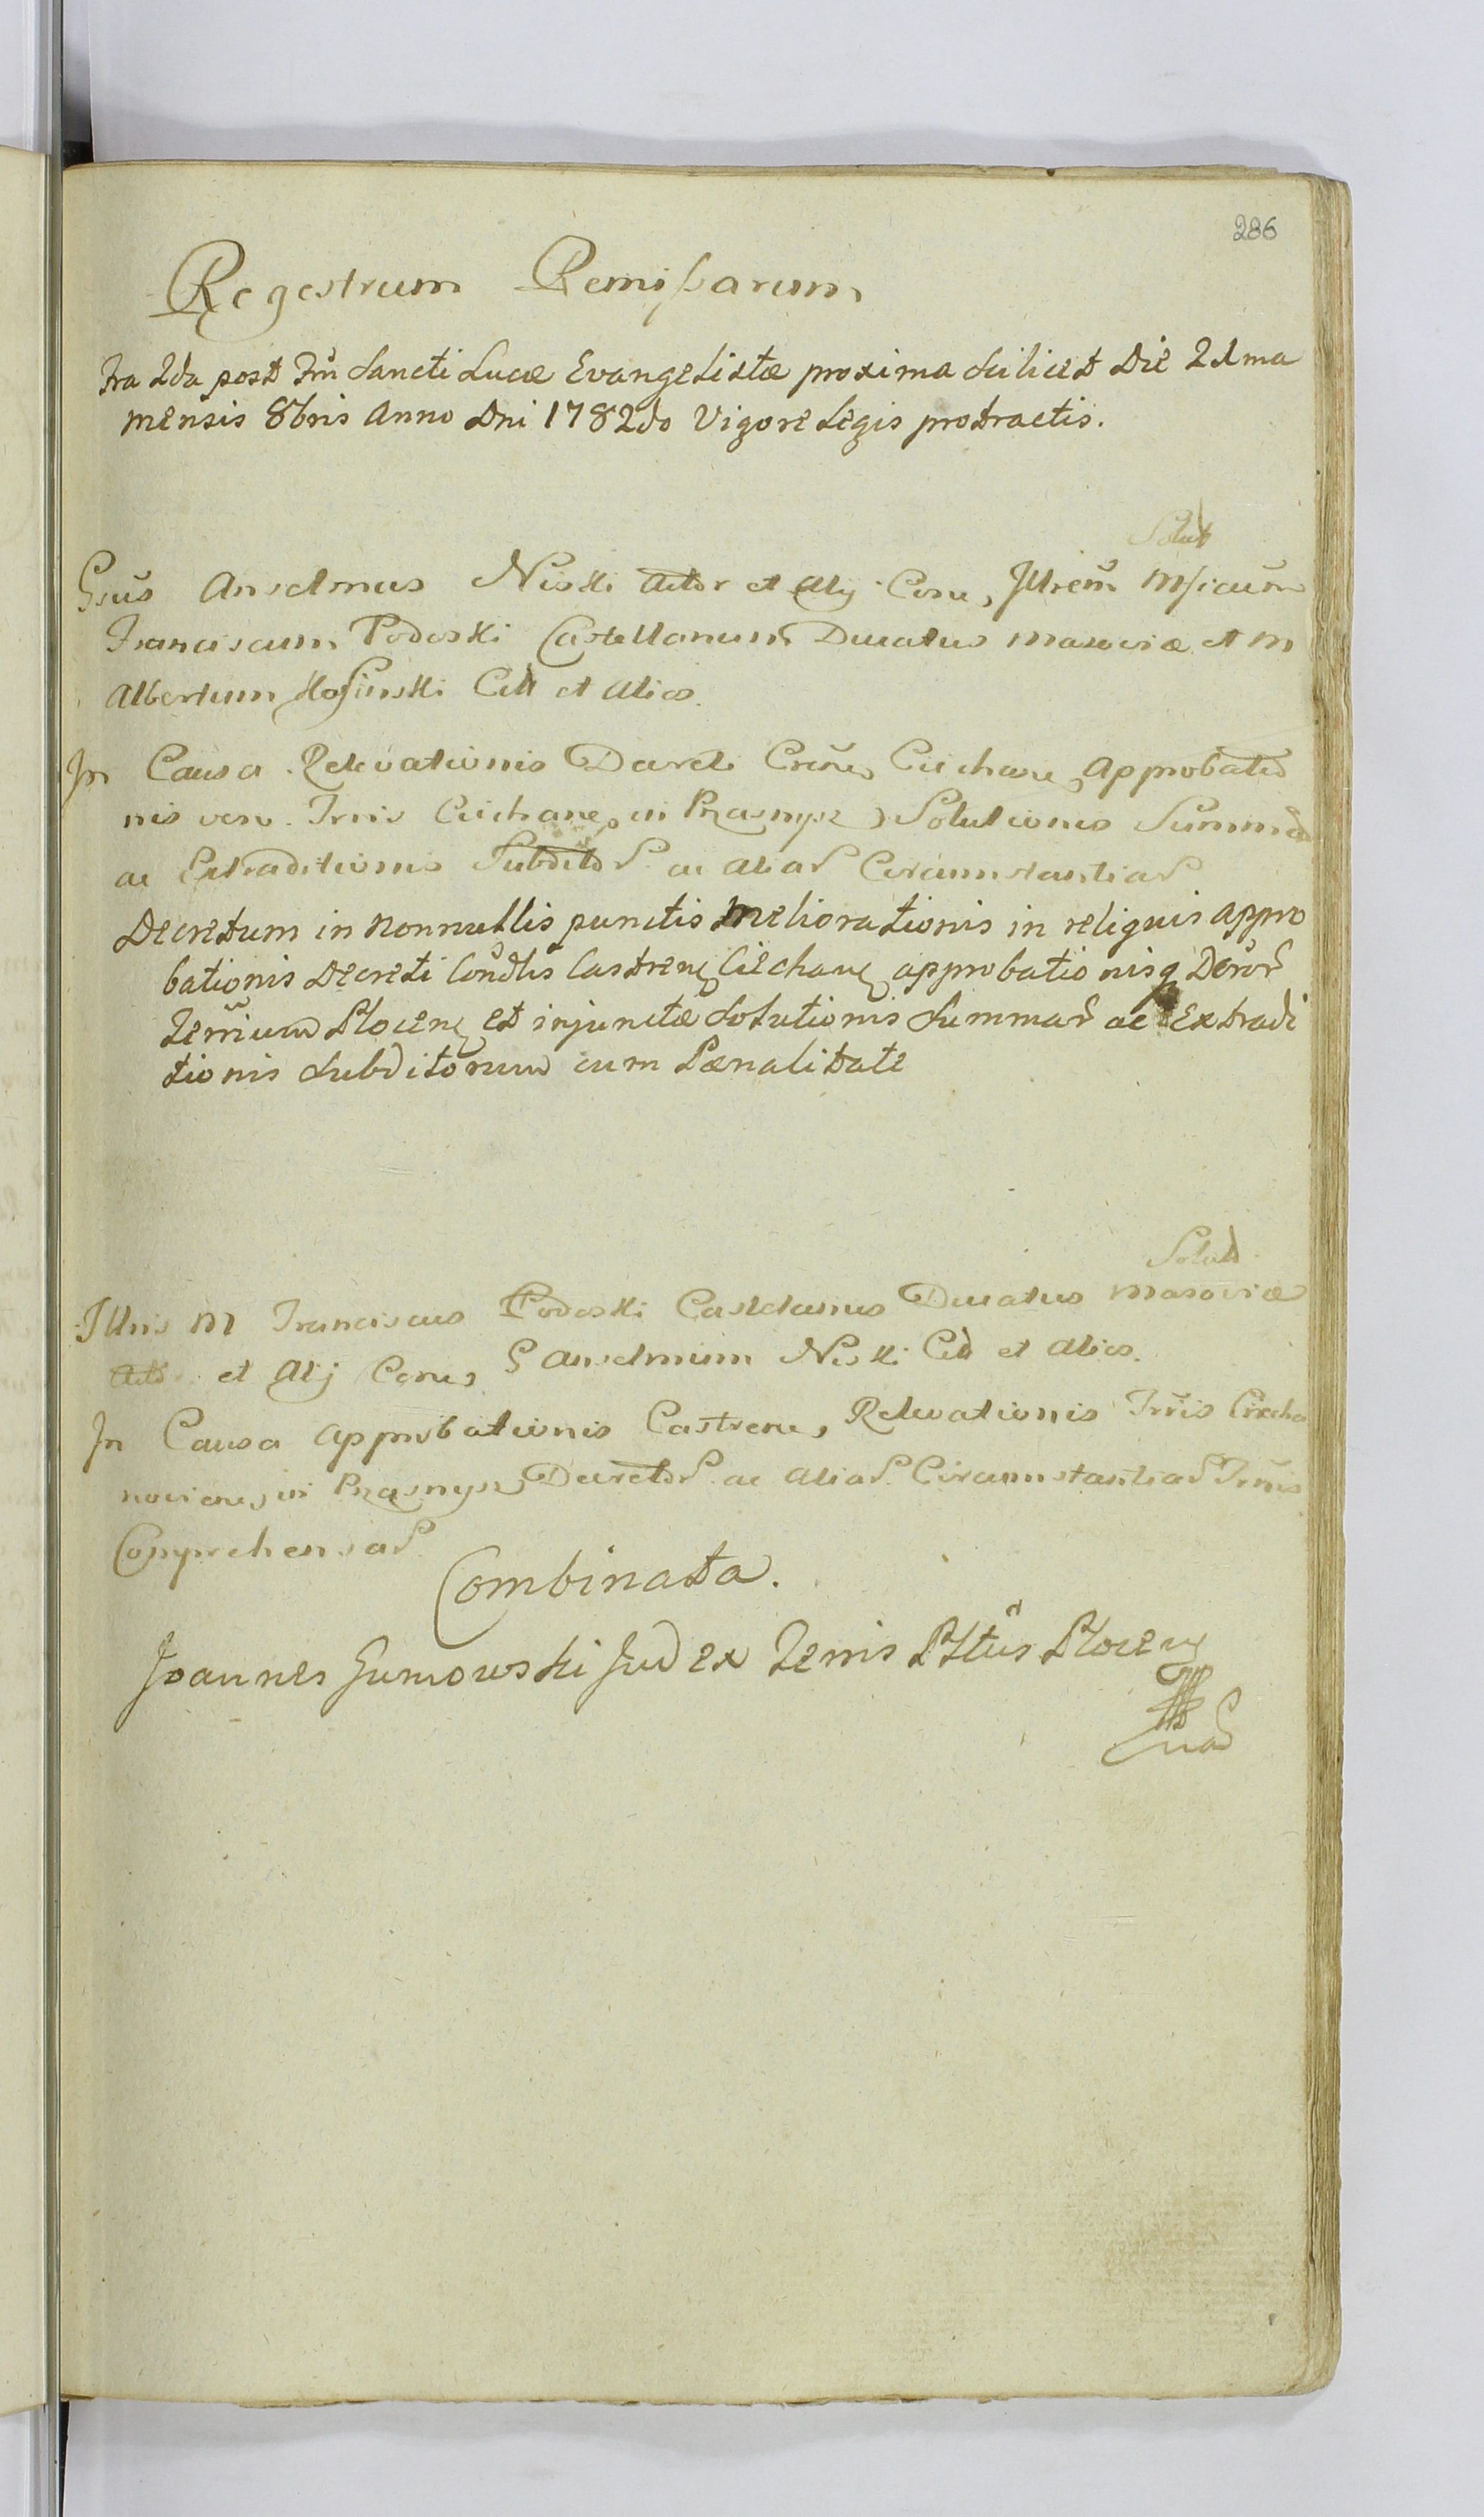 286
Regestrum Remissarum
Fra 2da post Ftũ Sancti Lucæ Evangelistæ proxima scilicet Die 21ma
mensis 8bris Anno Dni 1782do Vigore Legis protractis.
Solut
Gsũs Anselmus Niski Actor et Alij Conv, Jllrem Mficum
Franciscum Podoski Castellanum Ducatus Masoviæ et M
Albertum Kosinski Citt et Alios.
Jn Causa Relevationis Decreti Crẽn, Ciechan, Approbatio
nis vero Trris Ciechane, in Prasnysz, Solutionis Summar
ac Extraditionis Subditor ac Aliar Circumstantiar
Decretum in nonnullis punctis meliorationis in reliquis appro
bationis Decreti Condlis Castren, Ciechan, approbationisq Decror
Terrium Plocen, et injunctæ Solutionis Summar ac Extradi
tionis Subditorum cum Pœnalitate
Solut
Jllris M Franciscus Podoski Castelanus Ducatus Masoviæ
Actor et Alij Conv, G Anselmum Niski Cit et Alios.
Jn Causa Approbationis Castren, Relevationis Trris Ciecha
novien, in Prasnysz, Decretor ac Aliar Circumstantiar Trris
Comprehensar
Combinata.
Joannes Gumowski Judex Terris Pltũs Plocen,